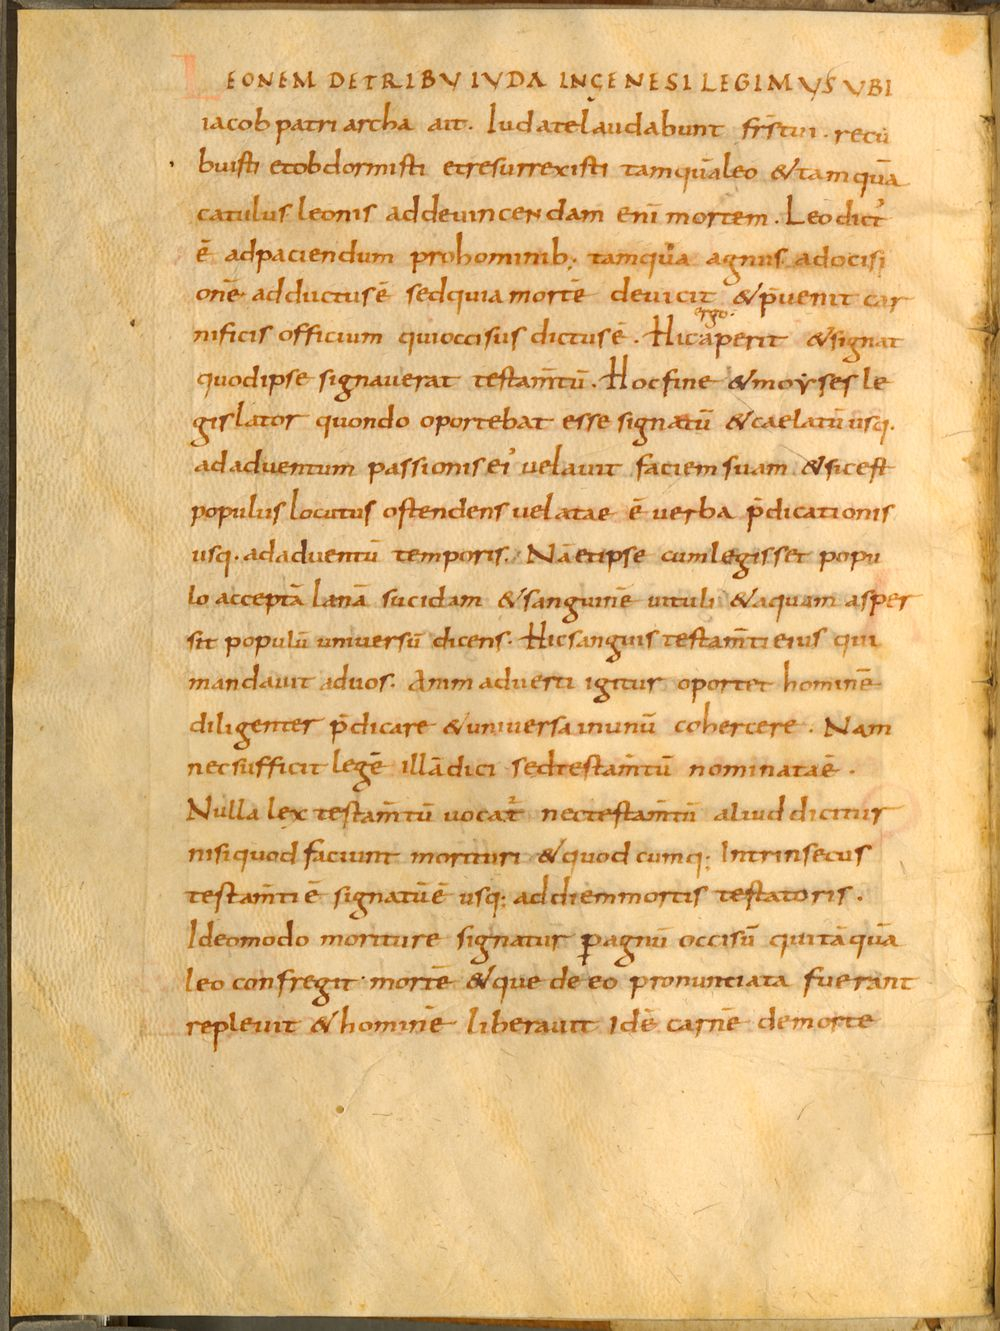 LEONEM DETRIBU IUDA INGENESI LEGIMUS UBI
iacob patriarcha ait. Iuda telaudabunt frs̄ tui. recū
buisti etobdormisti etresurrexisti tamquā leo & tamquā
catulus leonis addevincendam enī mortem. Leo dictʼ
ē adpaciendum prohominib; tamquā agnus adocisi
onē adductusē sedquia mortē devicit &p̄venit car
nificis officium quioccisus dictusē. Hic ergo aperit &signat
quodipse signaverat testam̄tū. Hocfine &moyses le
gislator quondo oportebat esse signatū &caelatū usq.
adadventum passionis eiʼ velavit faciem suam &sicest
populus locutus ostendens velatae ē verba p̄dicationis
usq. adadventū temporis. Nā etipse cumlegisset popu
lo acceptā lanā sucidam &sanguinē vituli &aquam asper
sit populū universū dicens. Hicsanguis testam̄ti eius qui
mandavit advos. Animadverti igitur oportet hominē
diligenter p̄dicare &universa inunū cohercere. Nam
necsufficit legē illā dici sedtestam̄tū nominataē.
Nulla lex testam̄tū vocat̄ nectestam̄tū aliud dicitur
nisiquod faciunt morituri &quodcumq; Intrinsecus
testam̄ti ē signatūē usq; addiem mortis testatoris.
Ideomodo moriture signatur ꝑ agnū occisū quitāquā
leo confregit mortē &que de eo pronunciata fuerant
replevit &hominē liberavit Idē carnē demorte